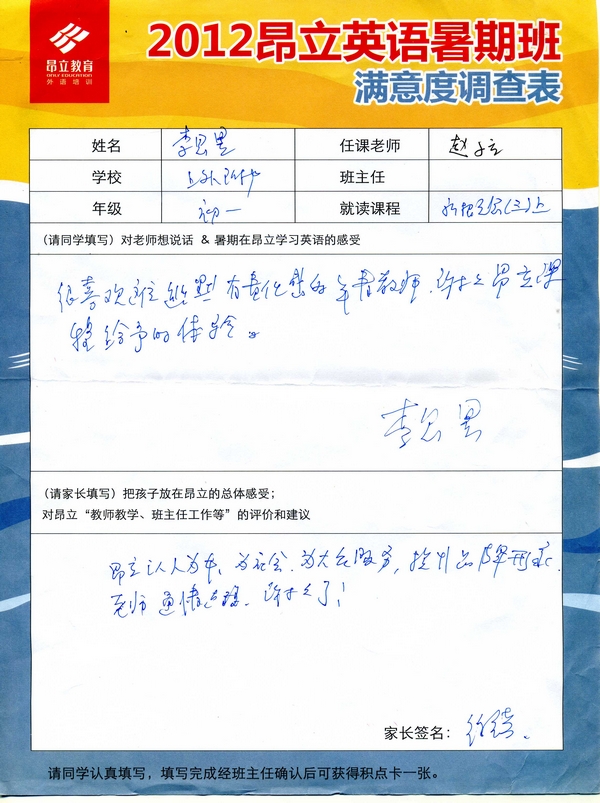 昂立教育
ONLY EDUCATION
外语培训
2012昂立英语暑期班
满意度调查表
姓名 李思 任课老师 赵
学校 上外附中 班主任
年级 初一 就读课程 (三)上
(请同学填写) 对老师想说话 & 暑期在昂立学习英语的感受
很喜欢这位幽默有责任感的年青教师，谢谢昂立课
程给予的体验。
李思
(请家长填写) 把孩子放在昂立的总体感受；
对昂立“教师教学、班主任工作等”的评价和建议
昂立以人为本，为社会、为大众服务，提升品牌形象.
老师通情达理，谢谢了！
家长签名：
请同学认真填写，填写完成经班主任确认后可获得积点卡一张。